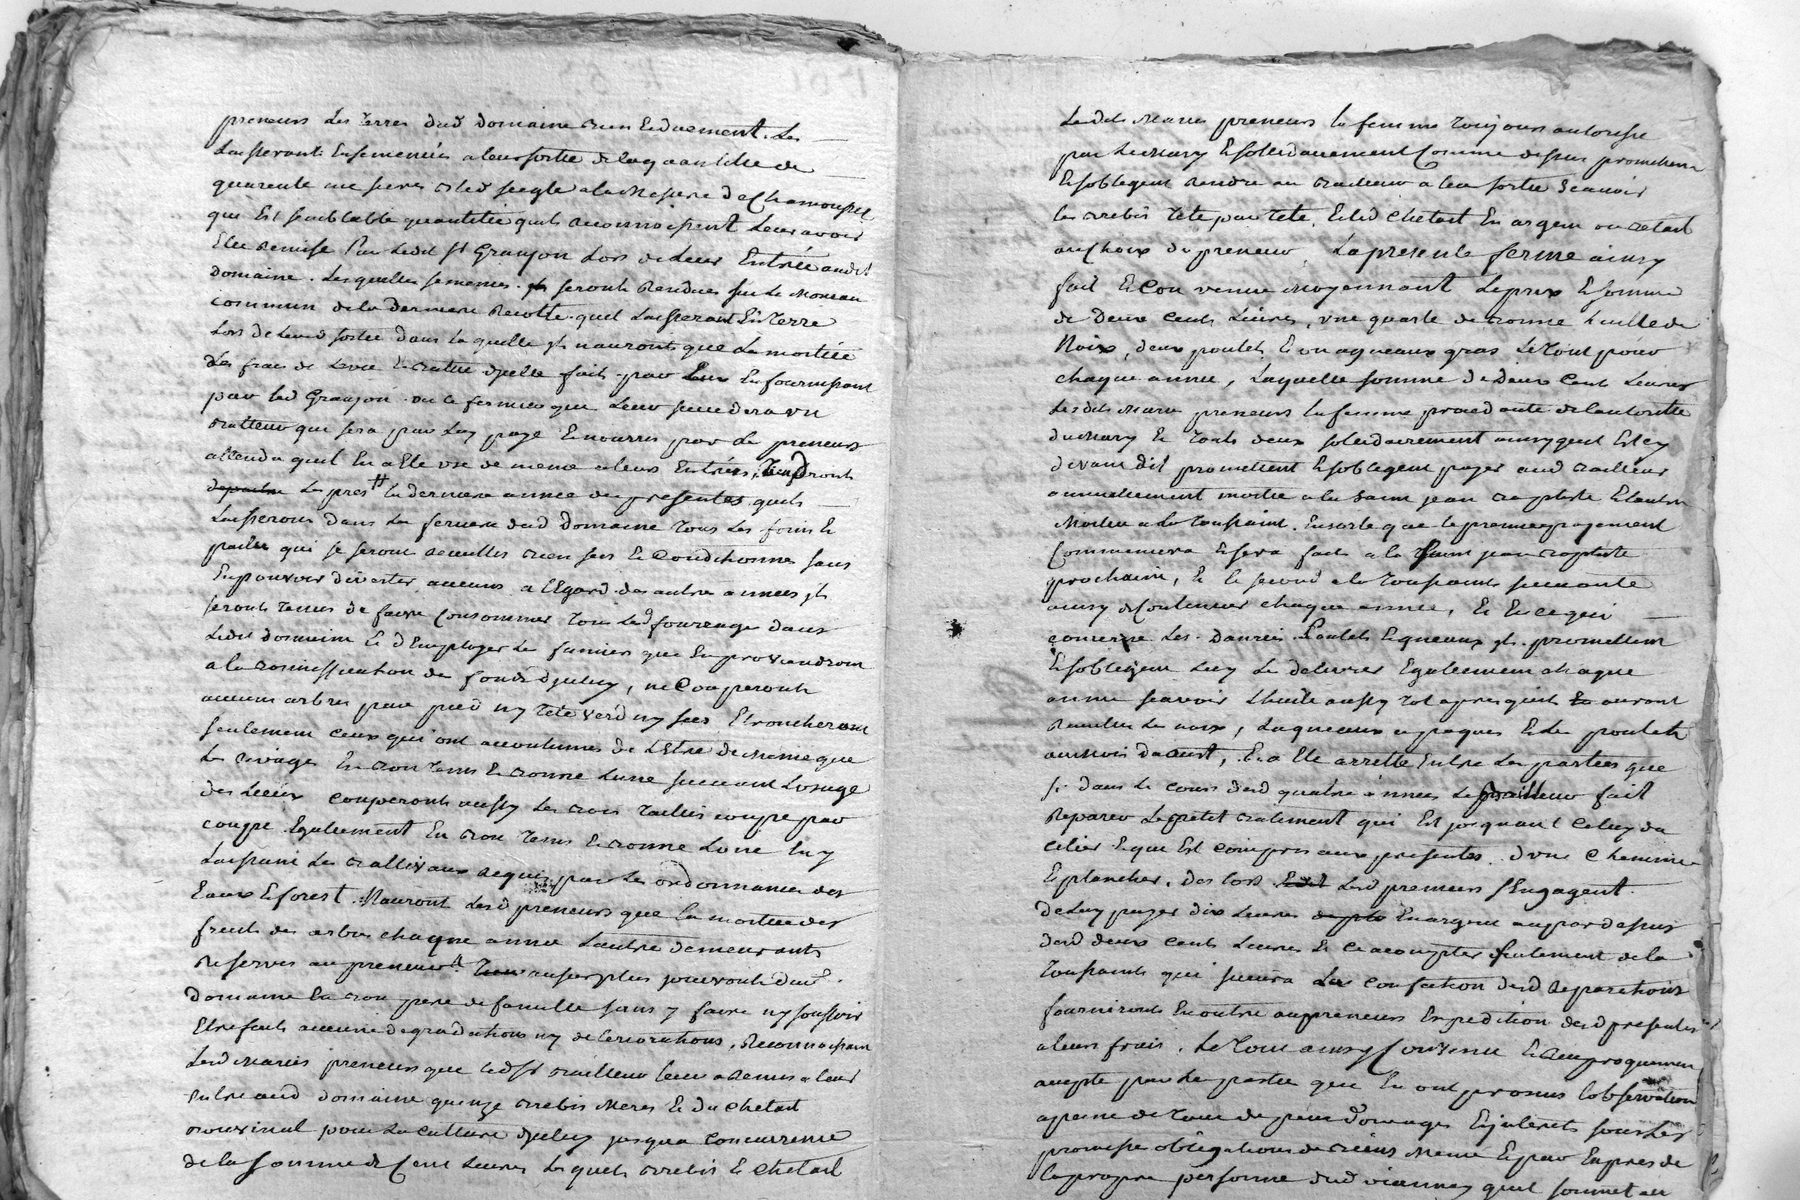 preneurs les terres dud domaine bien et duement. Les
laisseront ensemencées a leur sortie de la quantitée de
quarente une bled seegle a la mesure de Chamousset
qui est semblable quantitée quils reconnoissent leur avoir
Eté remise par ledit sr Granjon lors de leur Entrée audit
domaine. Lesquelles semences seront rendues sur le monceau
commun de la derniere recolte quil laisseront En terre
lors de leurd sortie dans laquelle jls nauronts que la moitiée
des frais de levée et batue djcelle faits par En fournissant
par led Granjon ou le fermier que leur succedera un
batteur que sera par luy payé et nourris par le preneurs
attendu quil En a Eté usé de meme a leur Entrée,
la derniere année des presentes quils
laisseront dans la feniere dud domaine tous les foins et
pailles qui se seront recuellis bien secs et conditionnés sans
En pouvoir divertir aucuns a lEgard des autre annees jls
seronts tenus de faire consommer tous led fourrage dans
ledit domaine et dEmployer le fumier que En proviendront
a la bonniffication des fonds djceluy, ne Couperonts
aucuns arbres par pied ny tete verd ny secs Ebrancheront
seulement ceux qui ont accoutumes de lEtre de meme que
les rivages En bon tems et bonne lune suivant lusage
des lieux couperonts aussy les bois taillis coupe par
coupe Egalement En bon tems et bonne lune En y
laissant les ballivaux requis par les ordonnances des
Eaux et forest. Nauront lesd preneurs que la moitiée des
fruits des arbres chaque année lautre demeurants
reservés au preneur au surplus jouironts dud
domaine En bon pere de famille sans y faire ny souffrir
Etre faits aucune degradations ny deteriorations, Reconnoissant
lesd mariés preneurs que ledt sr bailleur leur a remis a leur
Entrée aud domaine quinze brebis meres et du Chetail
bouvinal pour la culture djceluy jusqua concurrence
de la somme de Cent livres lesquels brebis et chetail
Lesdits Mariés preneurs la femme toujours autorisée
par le mary et solidairement Comme dessus promettent
Et soblegent rendre au bailleur a leur sortie scavoir
les brebis tete par tete, Et led Chetail En argent ou betail
au Choix du preneur, La presente ferme ainsy
fait et Convenue moyennant le prix et somme
de Deux Cents livres, une quarte de bonne huille de
Noix, deux poulets Et un agneaux gras le tout pour
chaque année, laquelle somme de deux Cents livres
lesdits mariés preneurs la femme procedante de lautoritée
du mary et touts deux solidairement ainsy quil Est cy
devant dit promettent Et soblegent payer aud bailleur
annuellement moitié a la saint jean baptiste Et lautre
moitié a la toussaint. Ensorte que le premier payement
Commencera Et sera fait a la saint jean baptiste
prochaine, Et le second a la toussaint suivante
ainsy a Continuer chaque année, Et En ce qui
concerne les danrées Poulets Et agneaux jls promettent
Et soblegent luy les delivrer Egalement chaque
année scavoir lhuile aussy tot apres quils auront
recuellis les noix, lagneaux a paques Et les poulets
au mois daoust, Et a Eté arretté Entre les parties que
si dans le cours desd quatre années le bailleur fait
reparer le petit batiment qui Est joignant Celuy du
celier Et que Est compris aux presentes, dune Cheminée
Et plancher, des lors lesd preneurs sEngagent
de luy payer dix livres En argent au par dessus
desd deux cents livres Et ce a compter seulement de la
toussaints qui suivra la confection desd reparations
fourniront En outre au preneurs Expedition desd presentes
a leurs frais. Le tout ainsy Convenu Et reciproquement
accepté par les parties que En ont promis lobservation
a peine de tous depens domages Et jnterets sous les
promesse obligations de biens meme Et par Expres de
la propre personne dud vianney quil soumet au